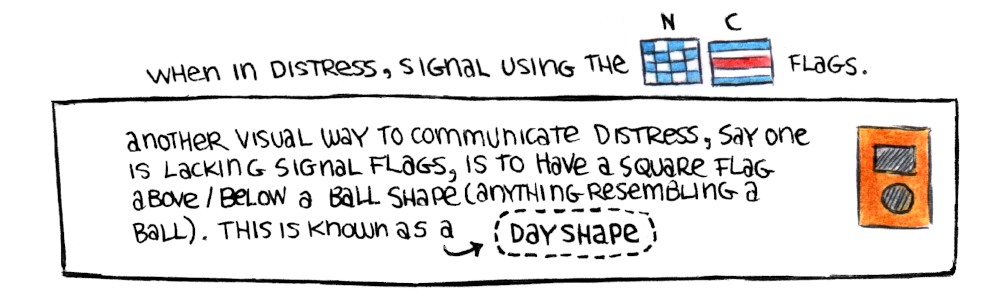 N C
WHEN IN DISTRESS, SIGNAL USING THE FLAGS.
ANOTHER VISUAL WAY TO COMMUNICATE DISTRESS, SAY ONE
IS LACKING SIGNAL FLAGS, IS TO HAVE A SQUARE FLAG
ABOVE / BELOW A BALL SHAPE (ANYTHING RESEMBLING A
BALL). THIS IS KNOWN AS A DAY SHAPE